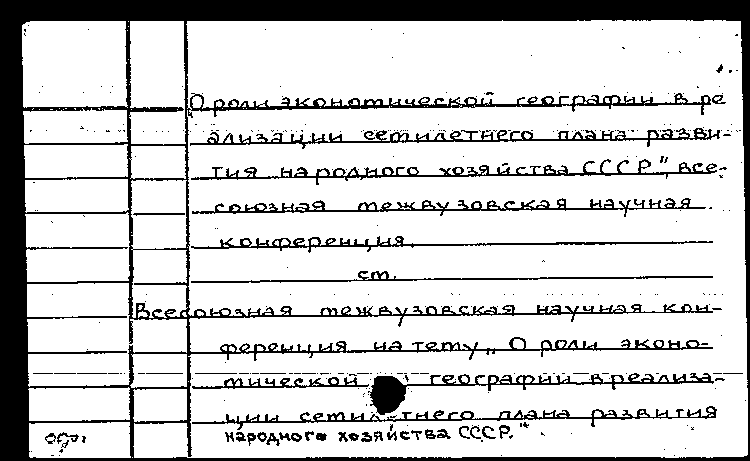 О роли экономической географии в ре
ализации семилетнего плана разви-
тия народного хозяйства СССР", все-
союзная межвузовская научная
конференция.
см.
Всесоюзная межвузовская научная кон-
ференция на тему „О роли эконо-
мической географии в реализа-
ции семилетнего плана развития
народного хозяйства СССР."